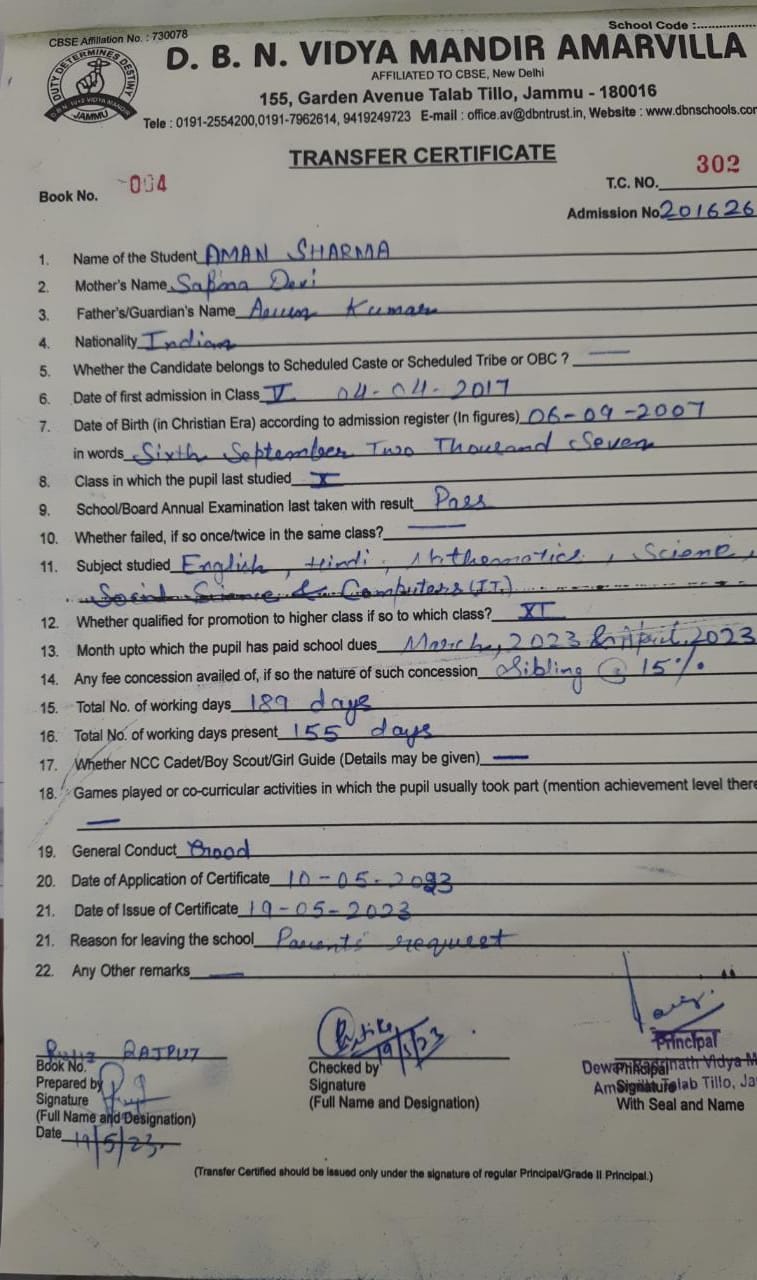 School Code :................
CBSE Affiliation No. : 730078
DUTY DETERMINES DESTINY
JAMMU
D. B. N. VIDYA MANDIR AMARVILLA
AFFILIATED TO CBSE, New Delhi
155, Garden Avenue Talab Tillo, Jammu - 180016
Tele : 0191-2554200,0191-7962614, 9419249723 E-mail : office.av@dbntrust.in, Website : www.dbnschools.com
TRANSFER CERTIFICATE
Book No. 004
T.C. NO. 302
Admission No 201626
1. Name of the Student AMAN SHARMA
2. Mother's Name Devi
3. Father's/Guardian's Name Kumar
4. Nationality Indian
5. Whether the Candidate belongs to Scheduled Caste or Scheduled Tribe or OBC ? —
6. Date of first admission in Class V 04-04-2017
7. Date of Birth (in Christian Era) according to admission register (In figures) 06-09-2007
in words Sixth September Two Thousand Seven
8. Class in which the pupil last studied X
9. School/Board Annual Examination last taken with result Pass
10. Whether failed, if so once/twice in the same class? —
11. Subject studied English, Hindi, Mathematics, Science,
Social Science & Computers (IT.)
12. Whether qualified for promotion to higher class if so to which class? XI
13. Month upto which the pupil has paid school dues March, 2023 & April, 2023
14. Any fee concession availed of, if so the nature of such concession Sibling @ 15%.
15. Total No. of working days 189 days
16. Total No. of working days present 155 days
17. Whether NCC Cadet/Boy Scout/Girl Guide (Details may be given) —
18. Games played or co-curricular activities in which the pupil usually took part (mention achievement level there
—
19. General Conduct Good
20. Date of Application of Certificate 10-05-2023
21. Date of Issue of Certificate 19-05-2023
21. Reason for leaving the school Parents' request
22. Any Other remarks —
RAJPUT
Book No.
Prepared by
Signature
(Full Name and Designation)
Date 19/5/23.
19/5/23
Checked by
Signature
(Full Name and Designation)
Principal
Principal
Signature
Talab Tillo, Ja
With Seal and Name
(Transfer Certified should be issued only under the signature of regular Principal/Grade II Principal.)